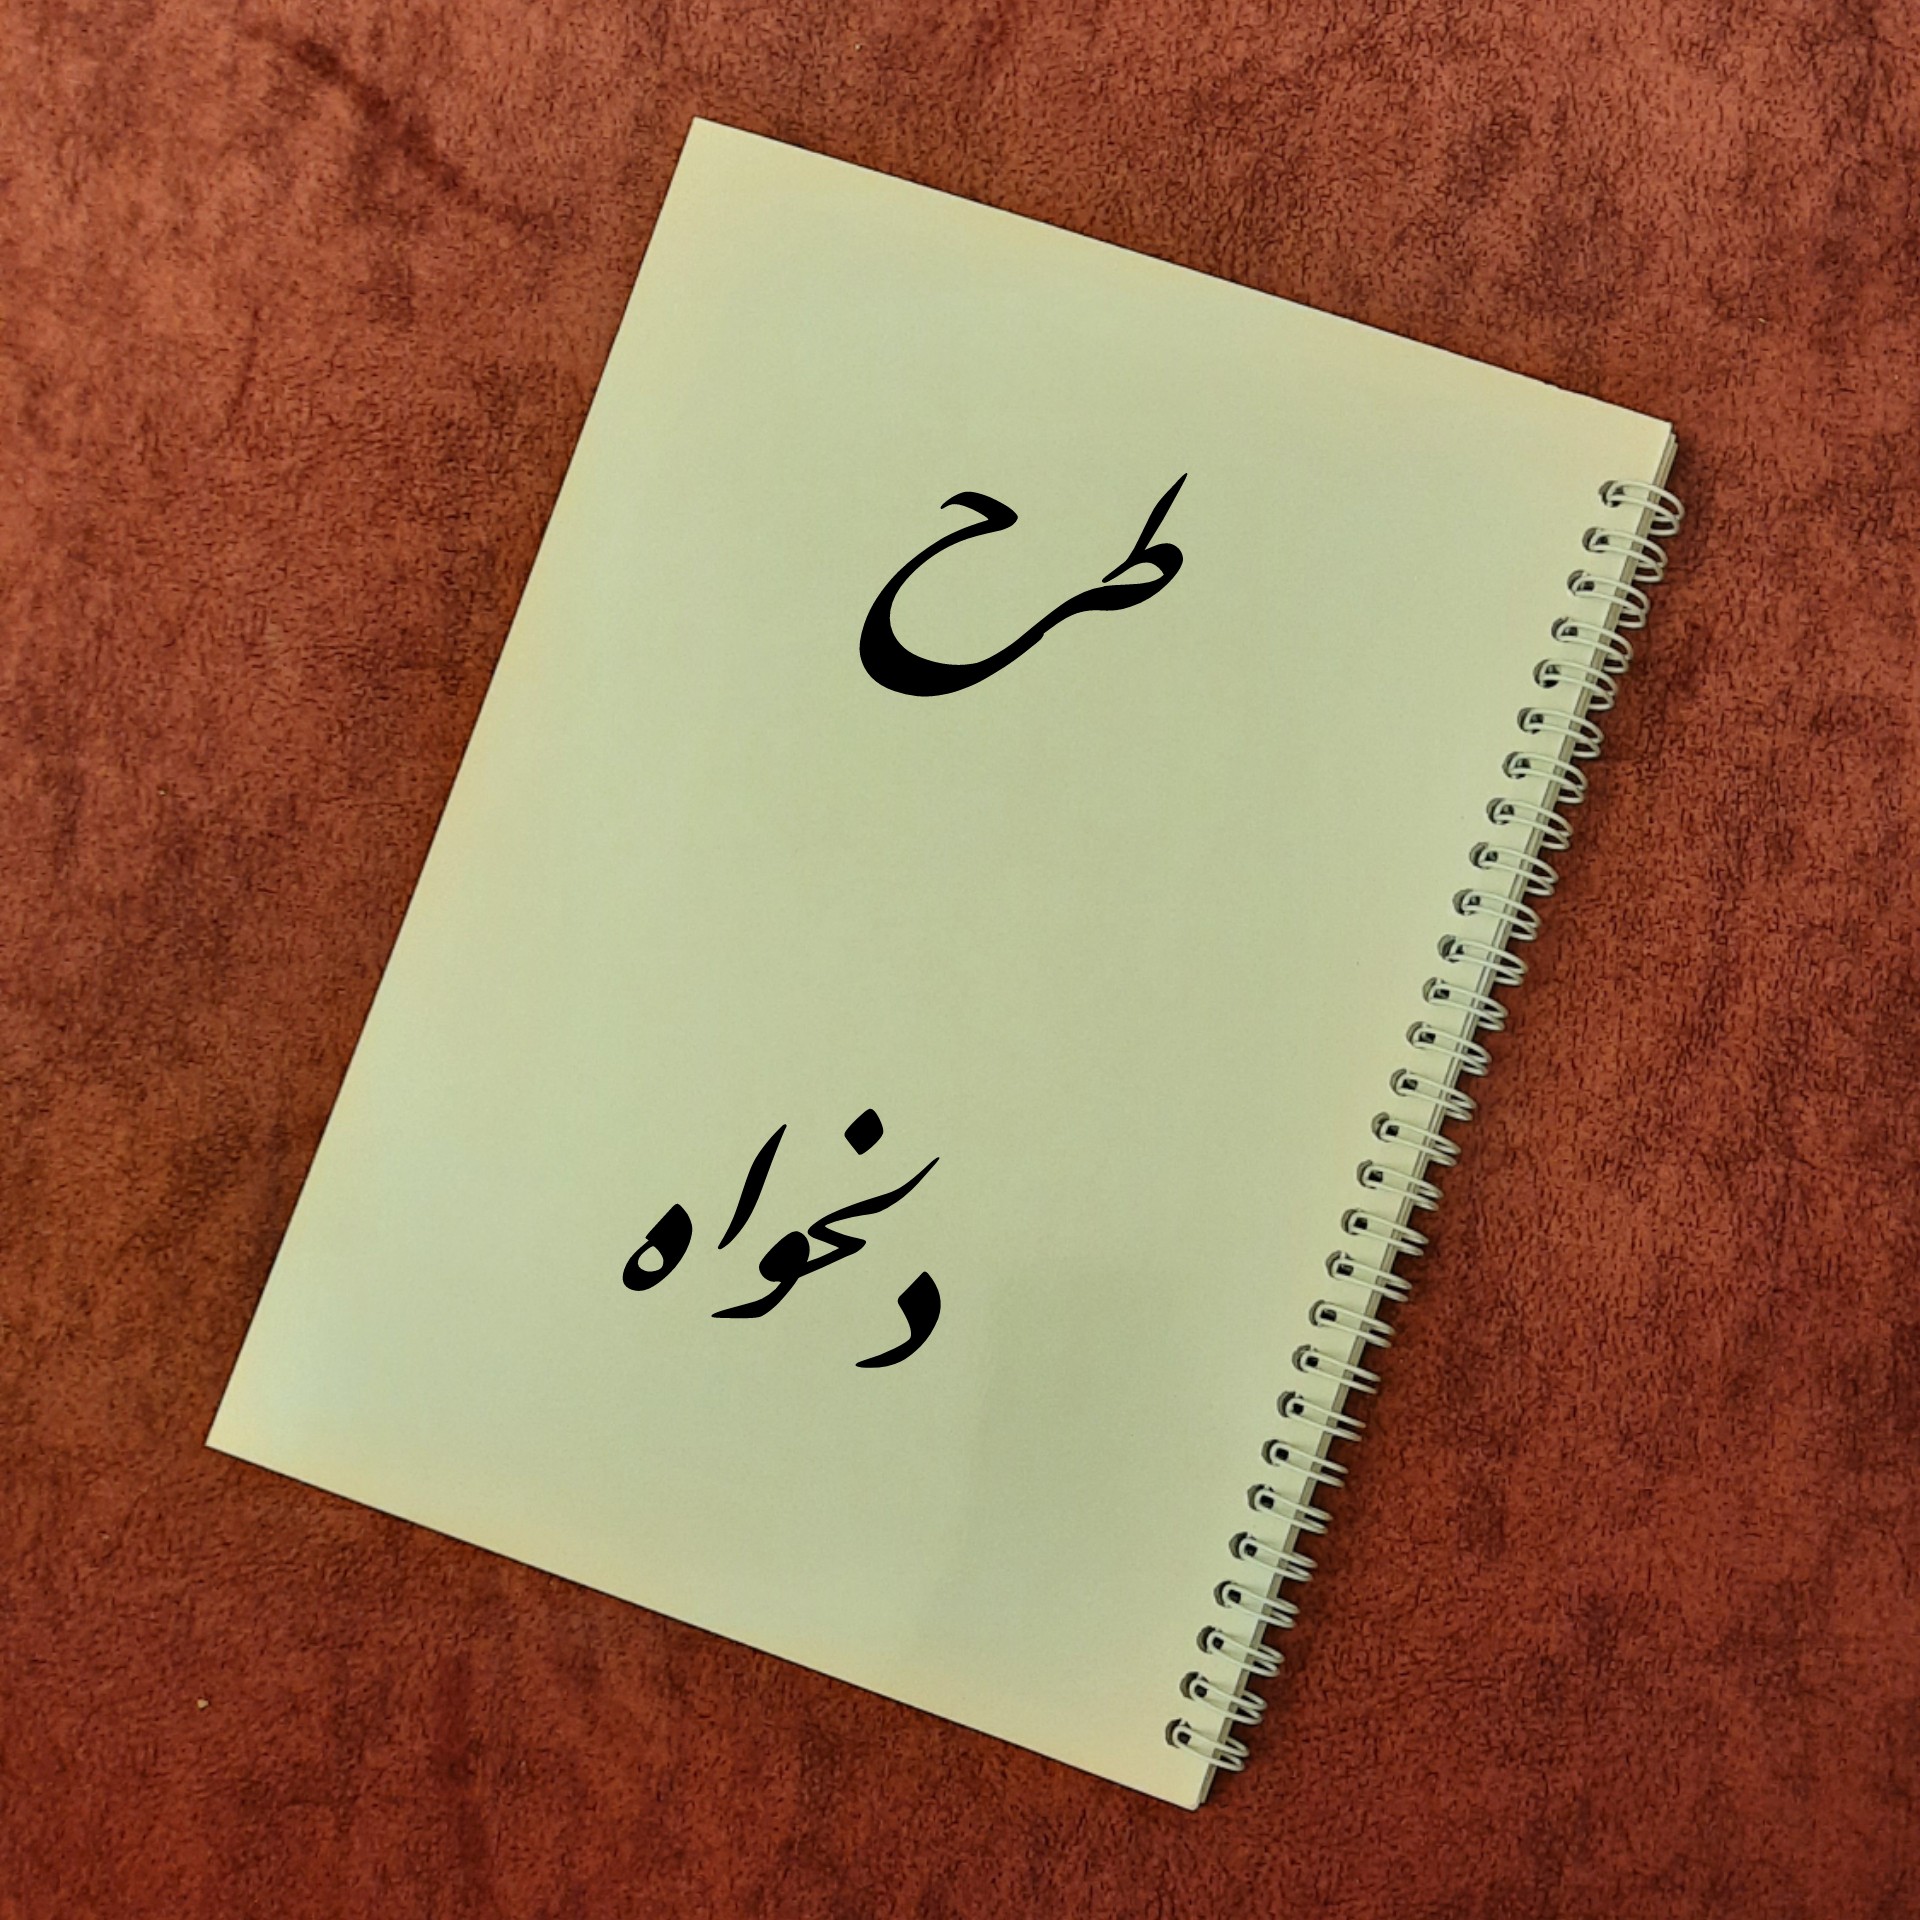 طرح
دلخواه